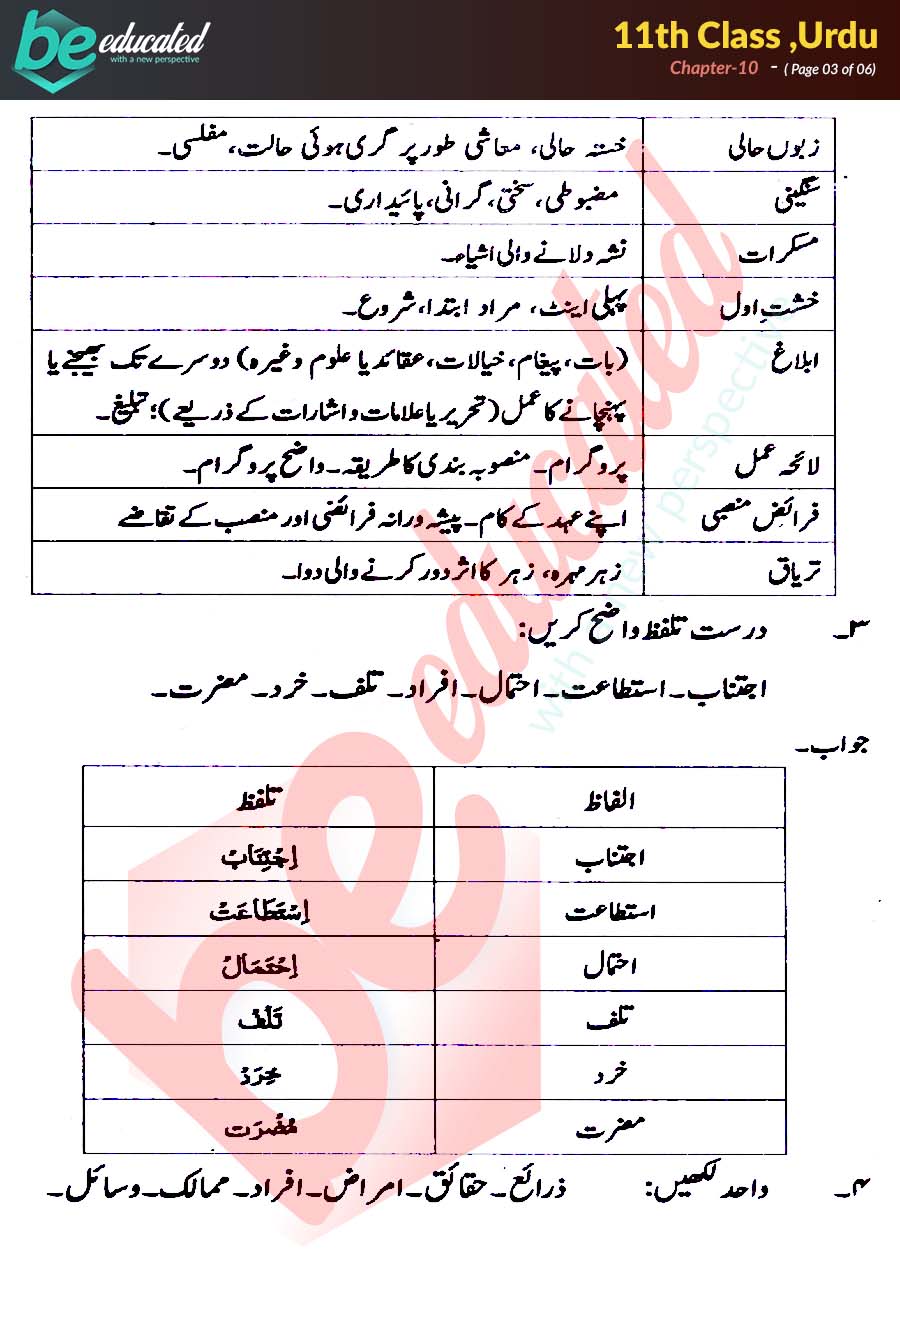 be educated
with a new perspective
11th Class ,Urdu
Chapter-10 - ( Page 03 of 06)
زبوں حالی خستہ حالی، معاشی طور پر گری ہوئی حالت، مفلسی۔
سنگینی مضبوطی، سختی، گرانی، پائیداری۔
مسکرات نشہ دلانے والی اشیاء۔
خشتِ اول پہلی اینٹ، مراد ابتدا، شروع۔
ابلاغ (بات، پیغام، خیالات، عقائد یا علوم وغیرہ) دوسرے تک بھیجنے یا
پہنچانے کا عمل (تحریر یا علامات و اشارات کے ذریعے)؛ تبلیغ۔
لائحہ عمل پروگرام۔ منصوبہ بندی کا طریقہ۔ واضح پروگرام۔
فرائض منصبی اپنے عہد کے کام۔ پیشہ ورانہ فرائضی اور منصب کے تقاضے
تریاق زہر مہرہ، زہر کا اثر دور کرنے والی دوا۔
۳۔ درست تلفظ واضح کریں:
اجتناب۔ استطاعت۔ احتمال۔ افراد۔ تلف۔ خرد۔ مضرت۔
جواب۔
الفاظ تلفظ
اجتناب اِجْتِنَابْ
استطاعت اِسْتَطَاعَتْ
احتمال اِحْتَمَالْ
تلف تَلَفْ
خرد خِرَدْ
مضرت مُضْرَت
۴۔ واحد لکھیں: ذرائع۔ حقائق۔ امراض۔ افراد۔ ممالک۔ وسائل۔
be educated
with a new perspective